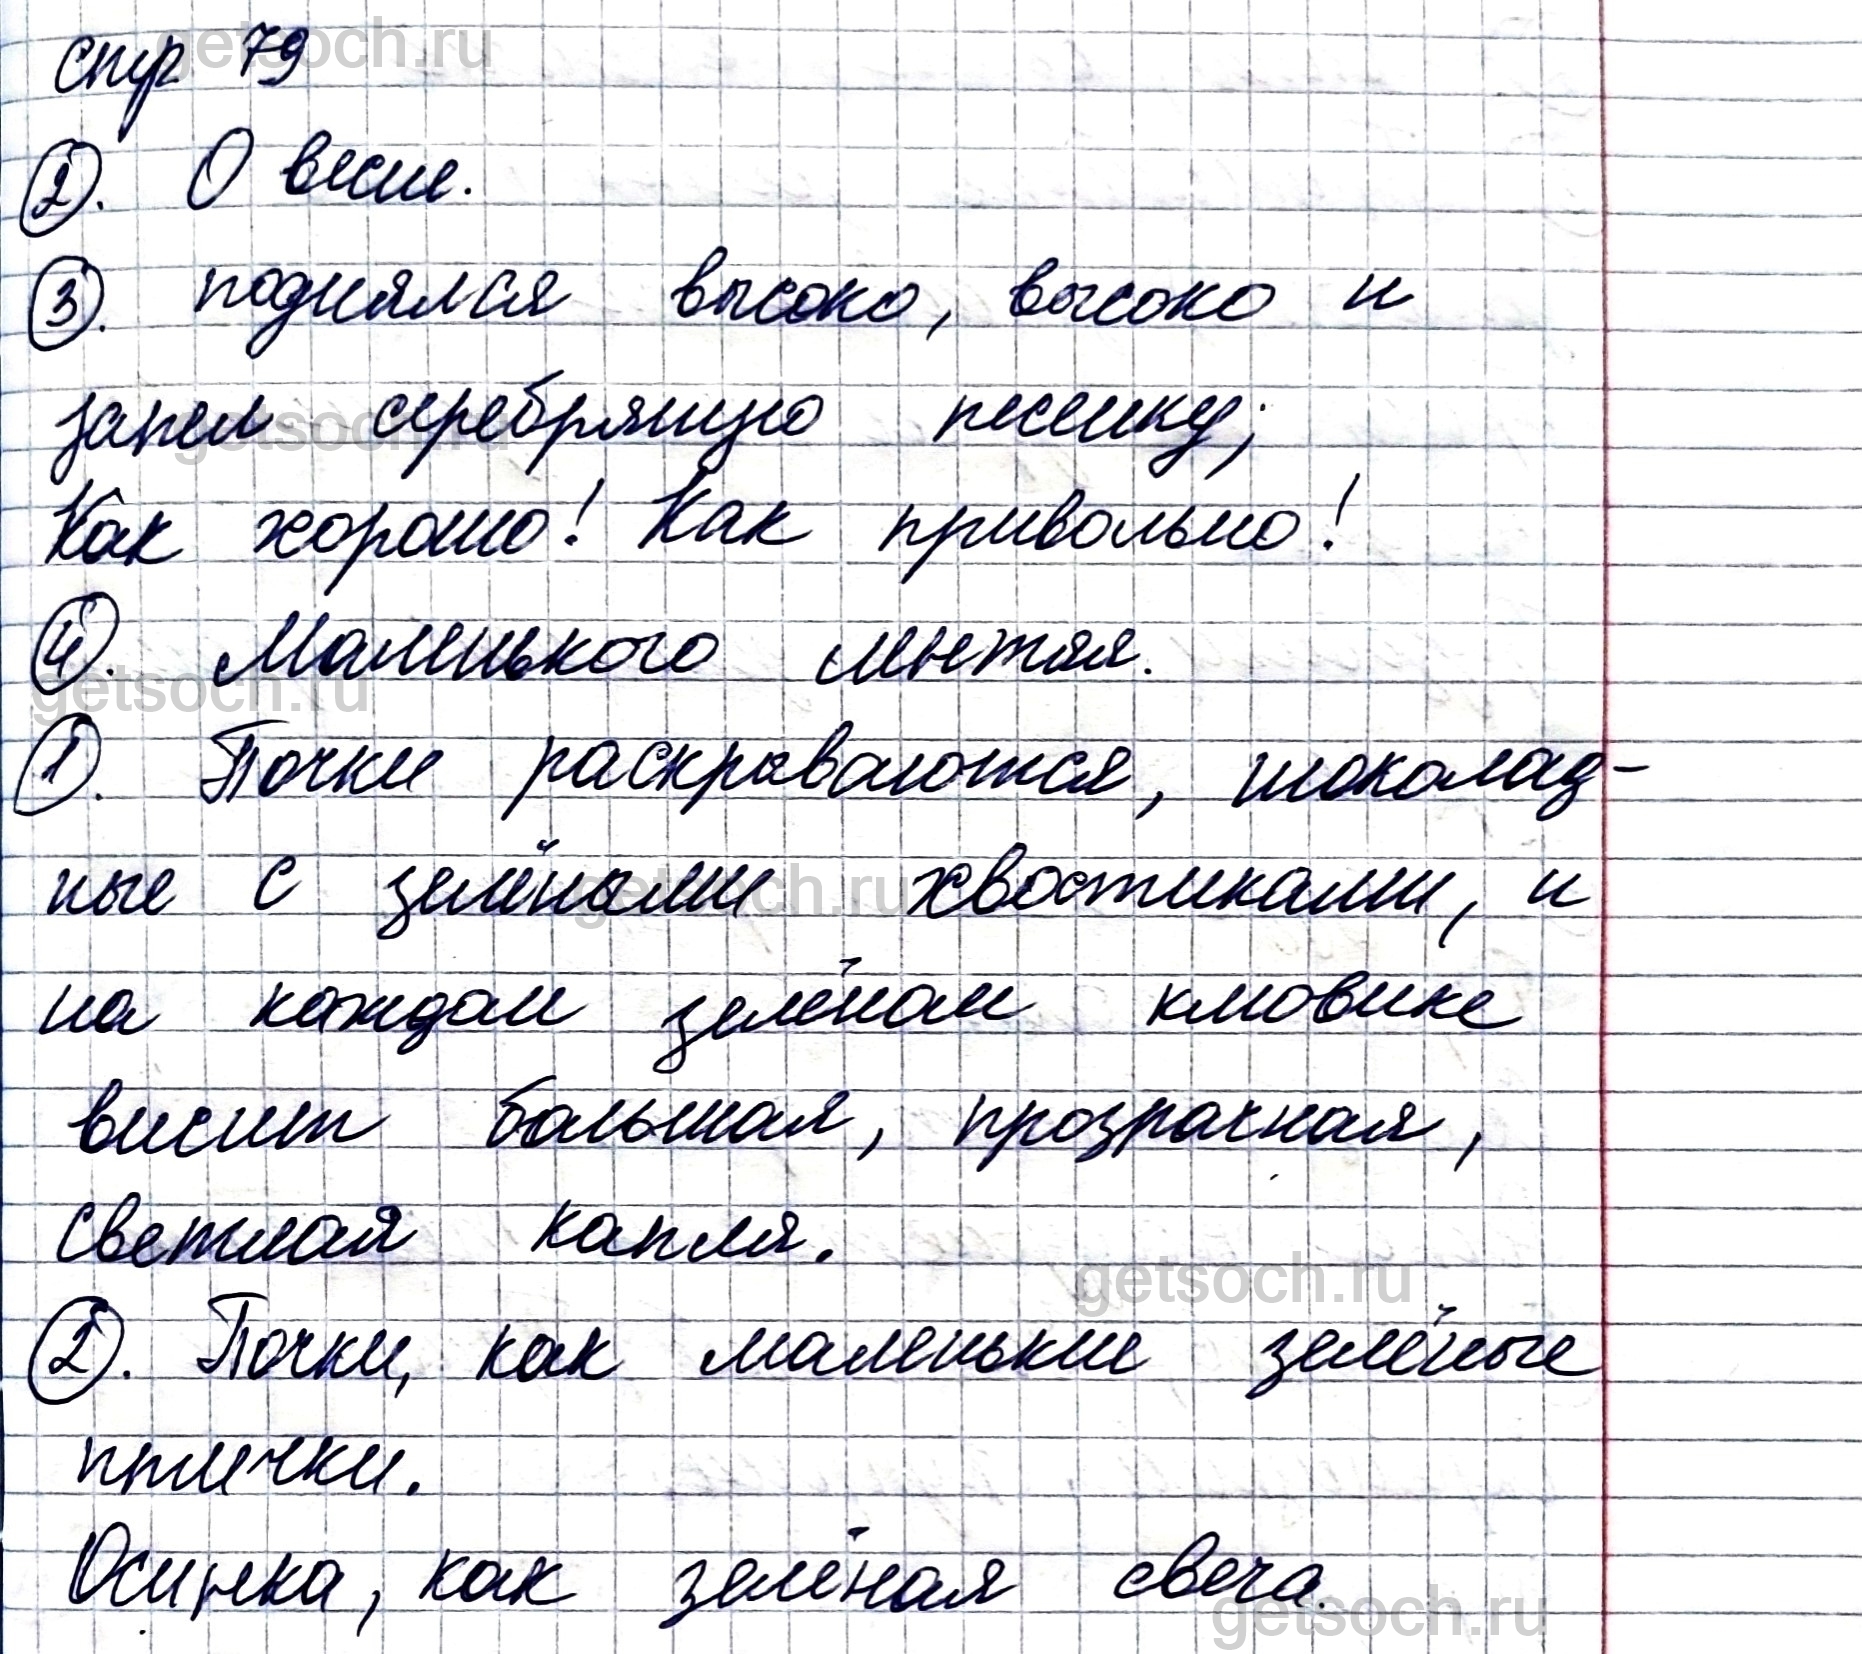 стр 79
②. О весне.
③. поднялся высоко, высоко и
запел серебряную песенку;
Как хорошо! Как привольно!
④. Маленького лентяя.
①. Почки раскрываются, шоколад-
ные с зелёными хвостиками, и
на каждом зелёном клювике
висит большая, прозрачная,
светлая капля.
②. Почки, как маленькие зелёные
птички.
Осинка, как зелёная свеча.
getsoch.ru
getsoch.ru
getsoch.ru
getsoch.ru
getsoch.ru
getsoch.ru